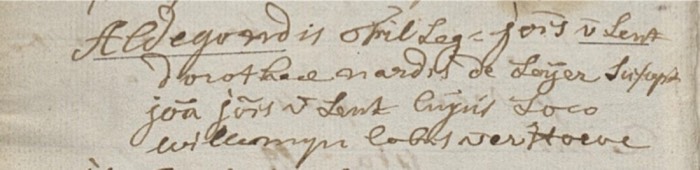 Aldegondis fil Leg= joīs v̄ Lent
dorothea nardis de Loijer Suscep
joā joīs v̄ Lent cujus Loco
willemyn verHoeve